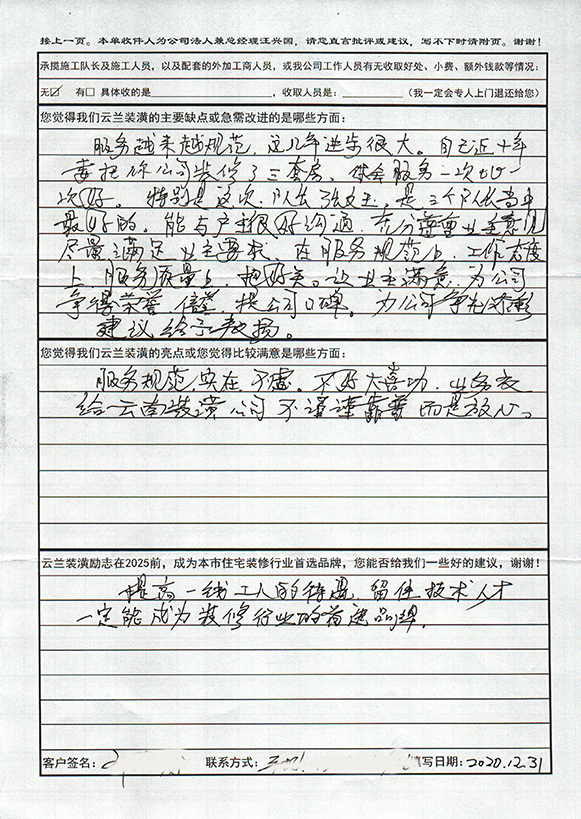 接上一页。本单收件人为公司法人兼总经理汪兴国，请您直言批评或建议，写不下时请附页。谢谢！
承揽施工队长及施工人员，以及配套的外加工商人员，或我公司工作人员有无收取好处、小费、额外钱款等情况：
无☑ 有□ 具体收的是，收取人员是：（我一定会专人上门退还给您）
您觉得我们云兰装潢的主要缺点或急需改进的是哪些方面：
服务越来越规范，这几年进步很大。自己近十年
要把你公司装修了三套房，体会服务一次比一
次好。特别是这次队长张文玉，是三个队长当中
最好的。能与户主很好沟通，充分尊重业主意见
尽量满足业主要求，在服务规范上，工作态度
上，服务质量上，把好关。让业主满意，为公司
争得荣誉信誉，提公司口碑。为公司争光添彩
建议给予表扬。
您觉得我们云兰装潢的亮点或您觉得比较满意是哪些方面：
服务规范，实在不虚。不好大喜功，业务交
给云南装潢公司不谨谨靠着而是放心。
云兰装潢励志在2025前，成为本市住宅装修行业首选品牌，您能否给我们一些好的建议，谢谢！
提高一线工人的待遇，留住技术人才
一定能成为装修行业的首选品牌。
客户签名： 联系方式： 填写日期：2020.12.31